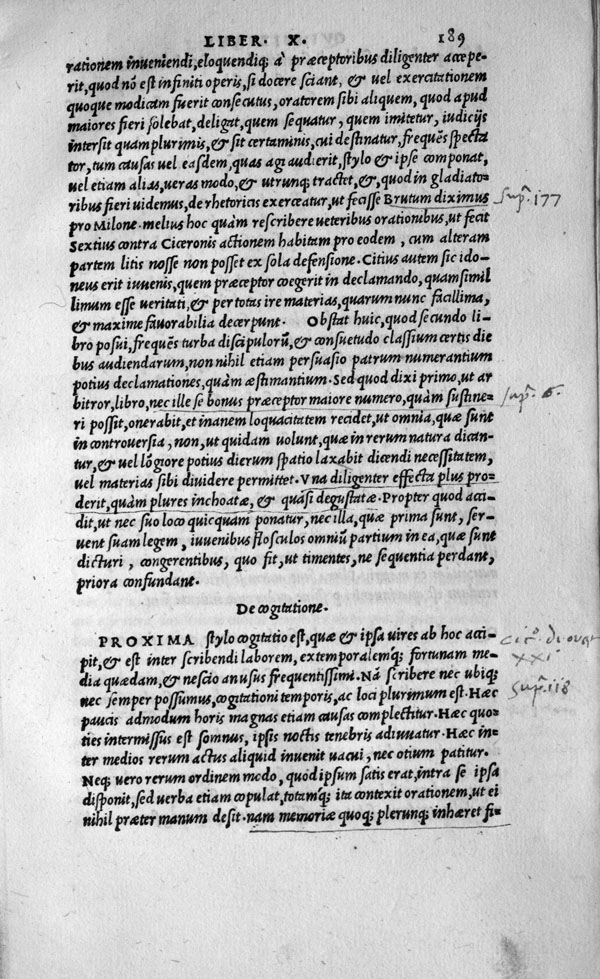 LIBER. X. 189
rationem inveniendi, eloquendiq; à præceptoribus diligenter accepe-
rit, quod nõ est infiniti operis, si docere sciant, & vel exercitationem
quoque modicam fuerit consecutus, oratorem sibi aliquem, quod apud
maiores fieri solebat, deligat, quem sequatur, quem imitetur, iudicijs
intersit quam plurimis, & sit certaminis, cui destinatur, frequẽs specta
tor, tum causas vel easdem, quas agi audierit, stylo & ipse componat,
vel etiam alias, veras modo, & utrunq; tractet, &, quod in gladiato-
ribus fieri videmus, de rhetoricis exerceatur, ut fecisse Brutum diximus
Sup. 177
pro Milone. melius hoc quàm rescribere veteribus orationibus, ut fecit
Sextius contra Ciceronis actionem habitam pro eodem, cum alteram
partem litis nosse non posset ex sola defensione. Citius autem sic ido-
neus erit iuvenis, quem præceptor coegerit in declamando, quam simil
limum esse veritati, & per totas ire materias, quarum nunc facillima,
& maxime favorabilia decerpunt. Obstat huic, quod secundo li-
bro posui, frequẽs turba discipulorũ, & consuetudo classium certis die
bus audiendarum, non nihil etiam persuasio patrum numerantium
potius declamationes, quàm æstimantium. Sed quod dixi primo, ut ar
bitror, libro, nec ille se bonus præceptor maiore numero, quàm sustine-
sup. 6.
ri possit, onerabit, et inanem loquacitatem recidet, ut omnia, quæ sunt
in controversia, non, ut quidam volunt, quæ in rerum natura dican-
tur, & vel lõgiore potius dierum spatio laxabit dicendi necessitatem,
vel materias sibi dividere permittet. Vna diligenter effecta plus pro-
derit, quàm plures inchoatæ, & quasi degustatæ. Propter quod acci-
dit, ut nec suo loco quicquam ponatur, nec illa, quæ prima sunt, ser-
vent suam legem, iuvenibus flosculos omniũ partium in ea, quæ sunt
dicturi, congerentibus, quo fit, ut timentes, ne sequentia perdant,
priora confundant.
De cogitatione.
PROXIMA stylo cogitatio est, quæ & ipsa vires ab hoc acci-
pit, & est inter scribendi laborem, extemporalemq; fortunam me-
dia quædam, & nescio an usus frequentissimi. Nã scribere nec ubiq;
XXI
nec semper possumus, cogitationi temporis, ac loci plurimum est. Hæc
Sup. 118
paucis admodum horis magnas etiam causas complectitur. Hæc quo-
ties intermissus est somnus, ipsis noctis tenebris adiuvatur. Hæc in-
ter medios rerum actus aliquid invenit vacui, nec otium patitur.
Neq; vero rerum ordinem modo, quod ipsum satis erat, intra se ipsa
disponit, sed verba etiam copulat, totamq; ita contexit orationem, ut ei
nihil præter manum desit. nam memoriæ quoq; plerunq; inhæret fi-